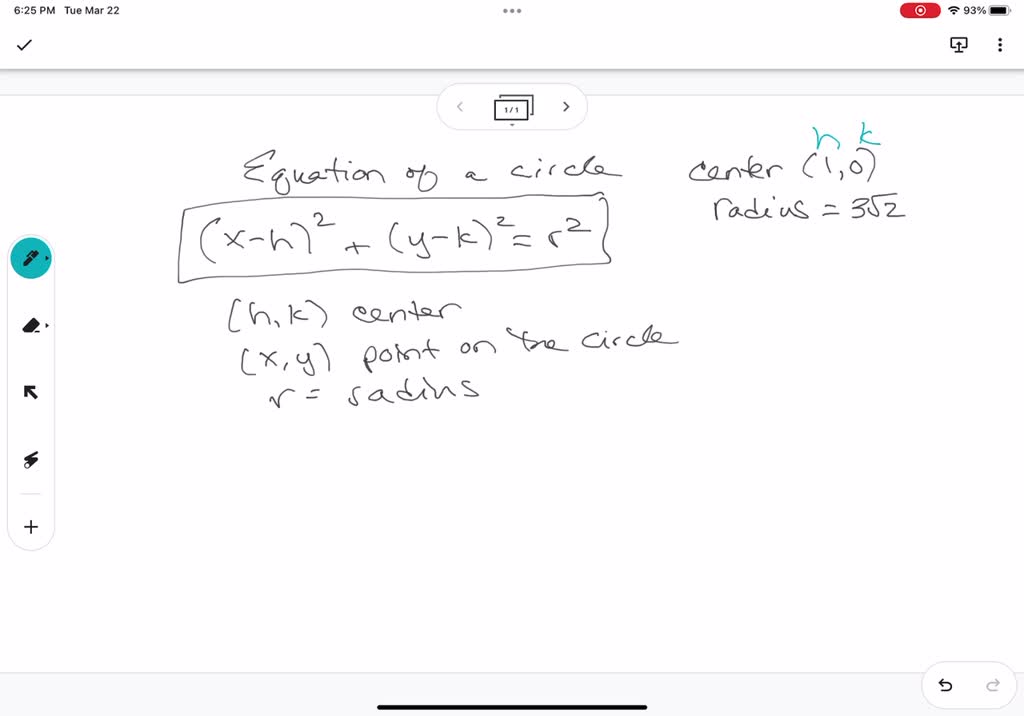 6:25 PM Tue Mar 22
93%
1/1
h k
Equation of a circle
center (1,0)
radius = 3√2
(x-h)² + (y-k)² = r²
(h,k) center
(x,y) point on the circle
r = radius